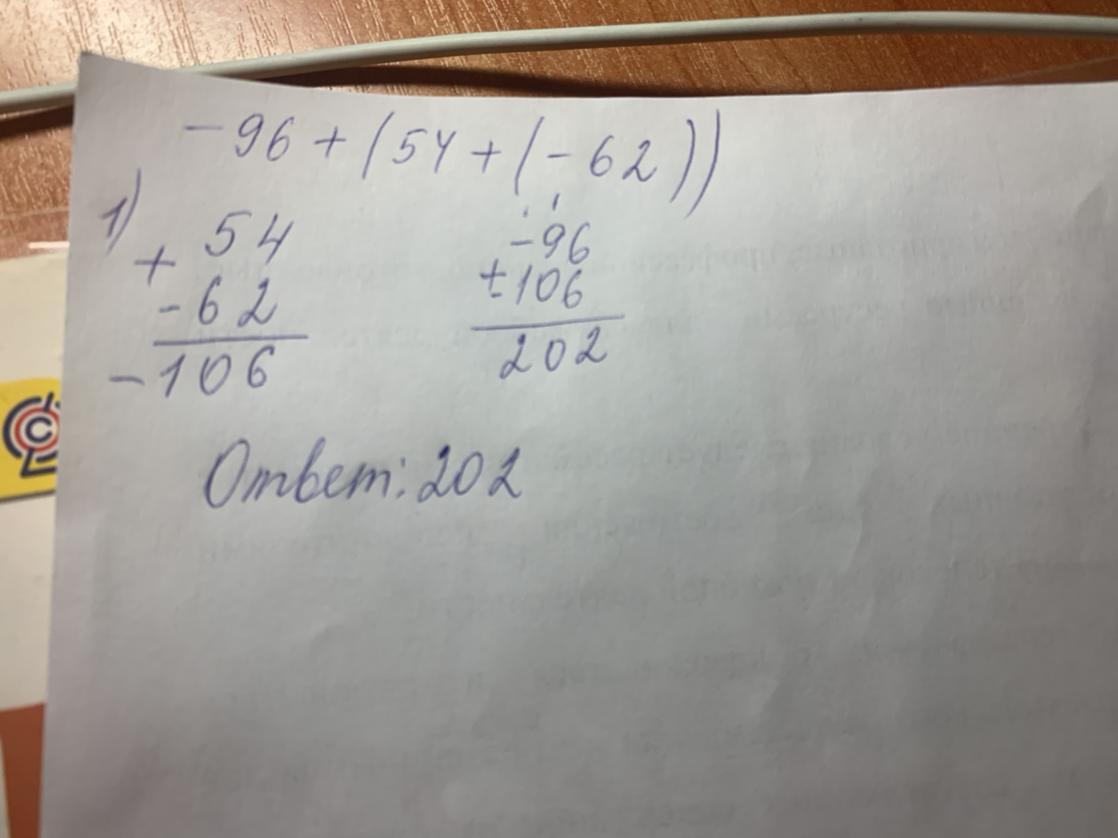 -96 + (54 + (-62))
1)
+ 54
-62
-106
-96
+-106
202
Ответ: 202